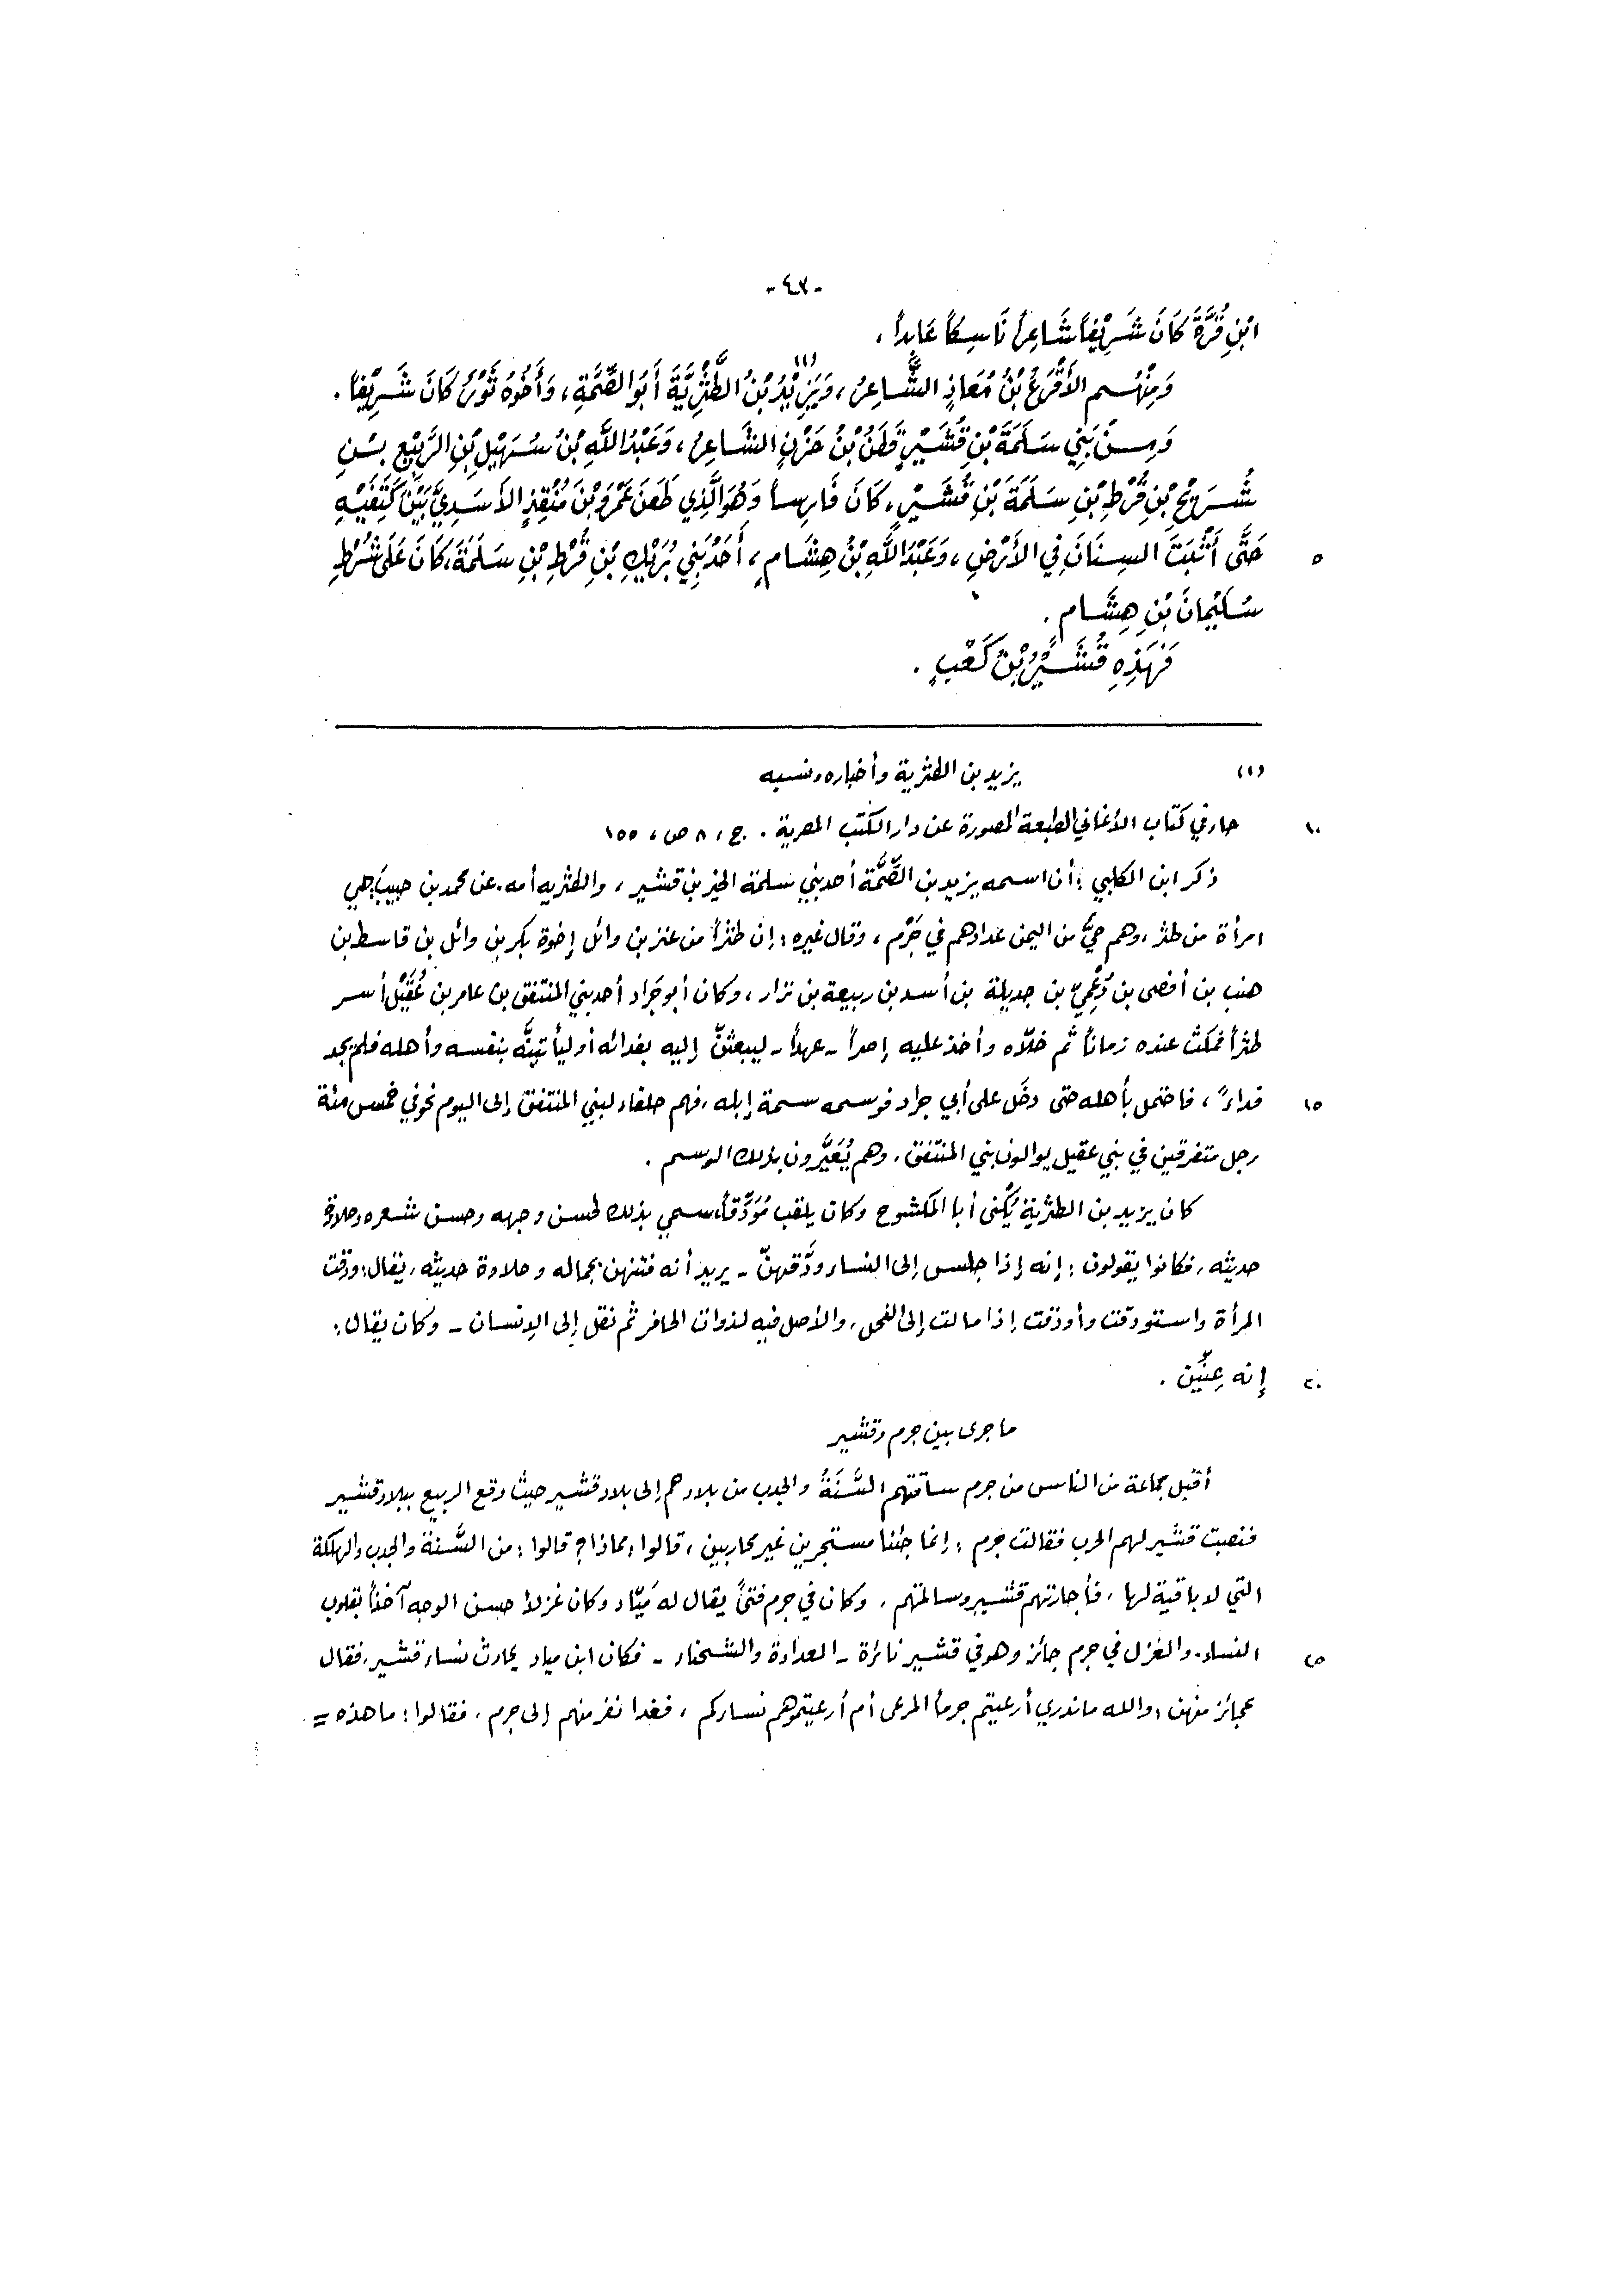 - ٤٣ -
ابْنِ قُرَّةَ كَانَ شَرِيْفاً شَاعِراً نَاسِكاً عَابِداً ،
وَمِنْهُم الأَقْرَعُ بْنُ مُعَاذٍ الشَّاعِرُ ، وَيَزِيْدُ بْنُ الطَّثْرِيَّةَ (١) أَبُو الصِّمَّةِ ، وَأَخُوهُ ثَوْرٌ كَانَ شَرِيْفاً .
وَمِنْ بَنِي سَلَمَةَ بْنِ قُشَيْرٍ قَطَنُ بْنُ حَزْنٍ الشَّاعِرُ ، وَعَبْدُ اللَّهِ بْنُ سُهَيْلِ بْنِ الرَّبِيْعِ بْنِ
شُرَيْحِ بْنِ قُرْطِ بْنِ سَلَمَةَ بْنِ قُشَيْرٍ ، كَانَ فَارِساً وَهُوَ الَّذِي طَعَنَ عَمْرَو بْنَ مُنْقِذٍ الأَسَدِيَّ بَيْنَ كَتِفَيْهِ
حَتَّى أَثْبَتَ السِنَانَ فِي الأَرْضِ ، وَعَبْدُ اللَّهِ بْنُ هِشَامٍ ، أَحَدُ بَنِي بُرَيْكِ بْنِ قُرْطِ بْنِ سَلَمَةَ ، كَانَ عَلَى شُرَطِ ٥
سُلَيْمَانَ بْنِ هِشَام .
فَهَذِهِ قُشَيْرُ بْنُ كَعْبٍ .
(١) يزيد بن الطثرية وأخباره ونسبه
جاء في كتاب الأغاني الطبعة المصورة عن دار الكتب المصرية . ج ، ٨ ص ، ١٥٥ ١٠
ذكر ابن الكلبي : أن اسمه يزيد بن الصِّمَّة أحد بني سلمة الخير بن قشير ، والطثرية أمه . عن محمد بن حبيب : هي
امرأة من طثر ، وهم حيٌّ من اليمن عدادهم في جَرْم ، وقال غيره : إن طثراً من عنز بن وائل إخوة بكر بن وائل بن قاسط بن
هنب بن أفصى بن دُعْمِيّ بن جديلة بن أسد بن ربيعة بن نزار ، وكان أبو جَرَاد أحد بني المنتفق بن عامر بن عُقَيْل أسر
طثراً فمكث عنده زماناً ثم خلّاه وأخذ عليه إصراً - عهداً - ليبعثنّ إليه بفدائه أو ليأتينَّه بنفسه وأهله فلم يجد
فداءً ، فاحتمل بأهله حتى دخَل على أبي جراد فوسمه سمة إبله ، فهم حلفاء لبني المنتفق إلى اليوم نحو في خمس مئة ١٥
رجل متفرقين في بني عقيل يوالون بني المنتفق ، وهم يُعَيَّرون بذلك الوسم .
كان يزيد بن الطثرية يُكْنى أبا المكشوح وكان يلقب مُوَدِّقاً ، سمي بذلك لحسن وجهه وحسن شعره وحلاوة
حديثه ، فكانوا يقولون : إنه إذا جلس إلى النساء ودَّقهنّ - يريد أنه فتنهن بجماله وحلاوة حديثه ، يقال : ودقت
المرأة واستودقت وأودقت إذا مالت إلى الفحل ، والأصل فيه لذوات الحافر ثم نقل إلى الإنسان - وكان يقال :
إنه عِنِّين . ٢٠
ما جرى بين جرم وقشير
أقبل جماعة من الناس من جرم ساقتهم السَّنَةُ والجدب من بلادهم إلى بلاد قشير حيث وقع الربيع ببلاد قشير
فنصبت قشير لهم الحرب فقالت جرم : إنما جئنا مستجيرين غير محاربين ، قالوا : مماذا ؟ قالوا : من السَّنة والجدب والهلكة
التي لا باقية لها ، فأجارتهم قشير وسالمتهم . وكان في جرم فتىً يقال له مَيّاد وكان غزلاً حسن الوجه آخذاً بقلوب
النساء . والغزل في جرم جائز وهو في قشير نائرة - العداوة والشحناء - فكان ابن مياد يحادث نساء قشير ، فقال ٢٥
عجائز منهن : والله ما ندري أرعيتم جرماً المرعى أم أرعيتموهم نساءكم ، فغدا نفر منهم إلى جرم ، فقالوا : ما هذه =